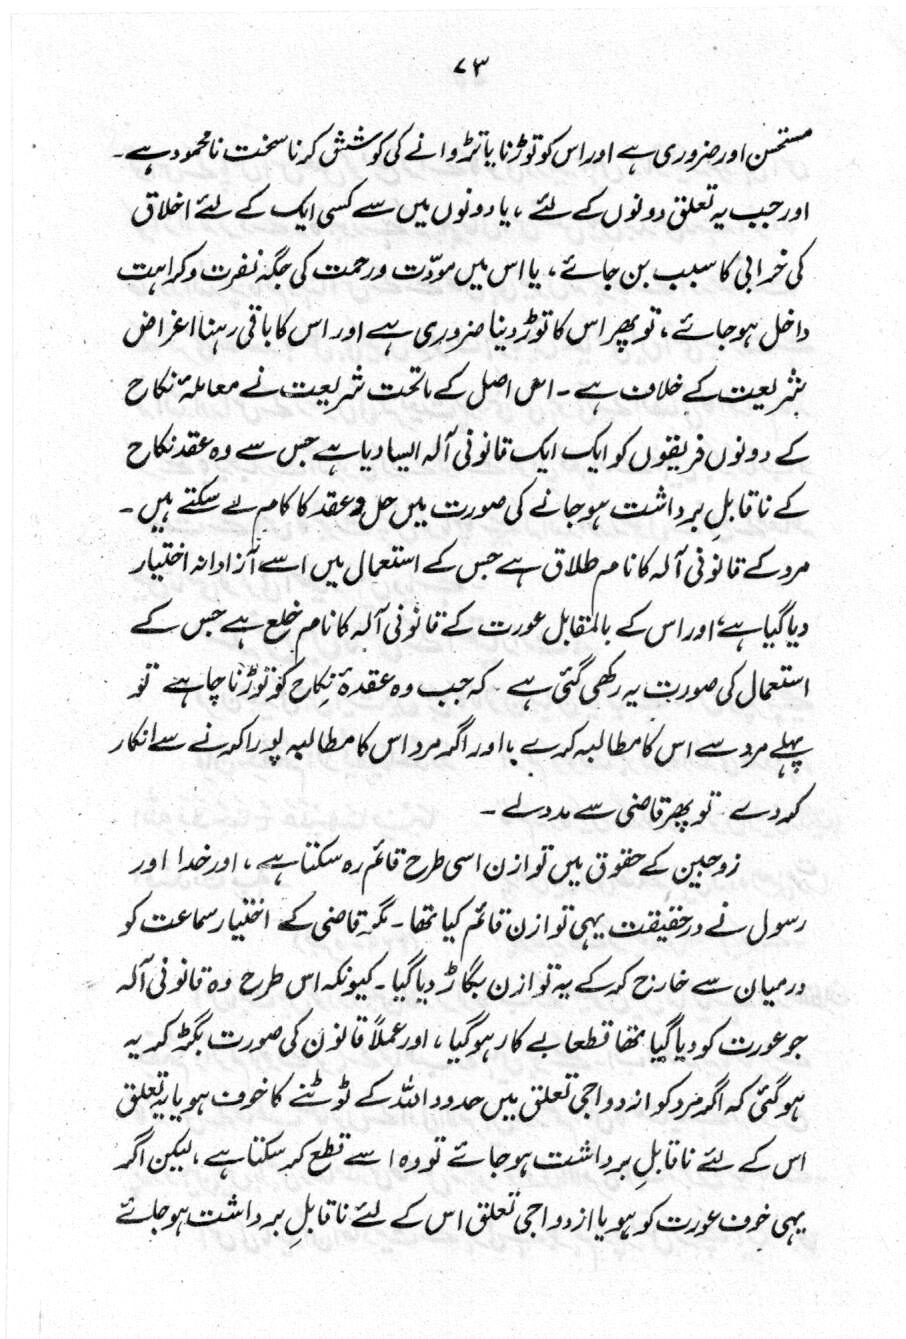 ۷۳
مستحسن اور ضروری ہے اور اس کو توڑنا یا تڑوانے کی کوشش کرنا سخت نامحمود ہے۔
اور جب یہ تعلق دونوں کے لئے ، یا دونوں میں سے کسی ایک کے لئے اخلاق
کی خرابی کا سبب بن جائے ، یا اس میں مودّت ورحمت کی جگہ نفرت وکراہت
داخل ہوجائے ، تو پھر اس کا توڑ دینا ضروری ہے اور اس کا باقی رہنا اغراض
شریعت کے خلاف ہے ۔ اسی اصل کے ماتحت شریعت نے معاملۂ نکاح
کے دونوں فریقوں کو ایک ایک قانونی آلہ ایسا دیا ہے جس سے وہ عقد نکاح
کے ناقابلِ برداشت ہوجانے کی صورت میں حل عقد کا کام لے سکتے ہیں ۔
مرد کے قانونی آلہ کا نام طلاق ہے جس کے استعمال میں اسے آزادانہ اختیار
دیا گیا ہے ، اور اس کے بالمقابل عورت کے قانونی آلہ کا نام خلع ہے جس کے
استعمال کی صورت یہ رکھی گئی ہے ۔ کہ جب وہ عقدۂ نکاح کو توڑنا چاہے تو
پہلے مرد سے اس کا مطالبہ کرے ، اور اگر مرد اس کا مطالبہ پورا کرنے سے انکار
کر دے ۔ تو پھر قاضی سے مدد لے ۔
زوجین کے حقوق میں توازن اسی طرح قائم رہ سکتا ہے ، اور خدا اور
رسول نے درحقیقت یہی توازن قائم کیا تھا ۔ مگر قاضی کے اختیار سماعت کو
درمیان سے خارج کرکے یہ توازن بگاڑ دیا گیا ۔ کیونکہ اس طرح وہ قانونی آلہ
جو عورت کو دیا گیا تھا قطعا بے کار ہوگیا ، اور عملاً قانون کی صورت بگڑ کر یہ
ہوگئی کہ اگر مرد کو ازدواجی تعلق میں حدود اللہ کے ٹوٹنے کا خوف ہو یا یہ تعلق
اس کے لئے ناقابلِ برداشت ہوجائے تو وہ اسے قطع کر سکتا ہے ، لیکن اگر
یہی خوف عورت کو ہو یا ازدواجی تعلق اس کے لئے ناقابلِ برداشت ہوجائے